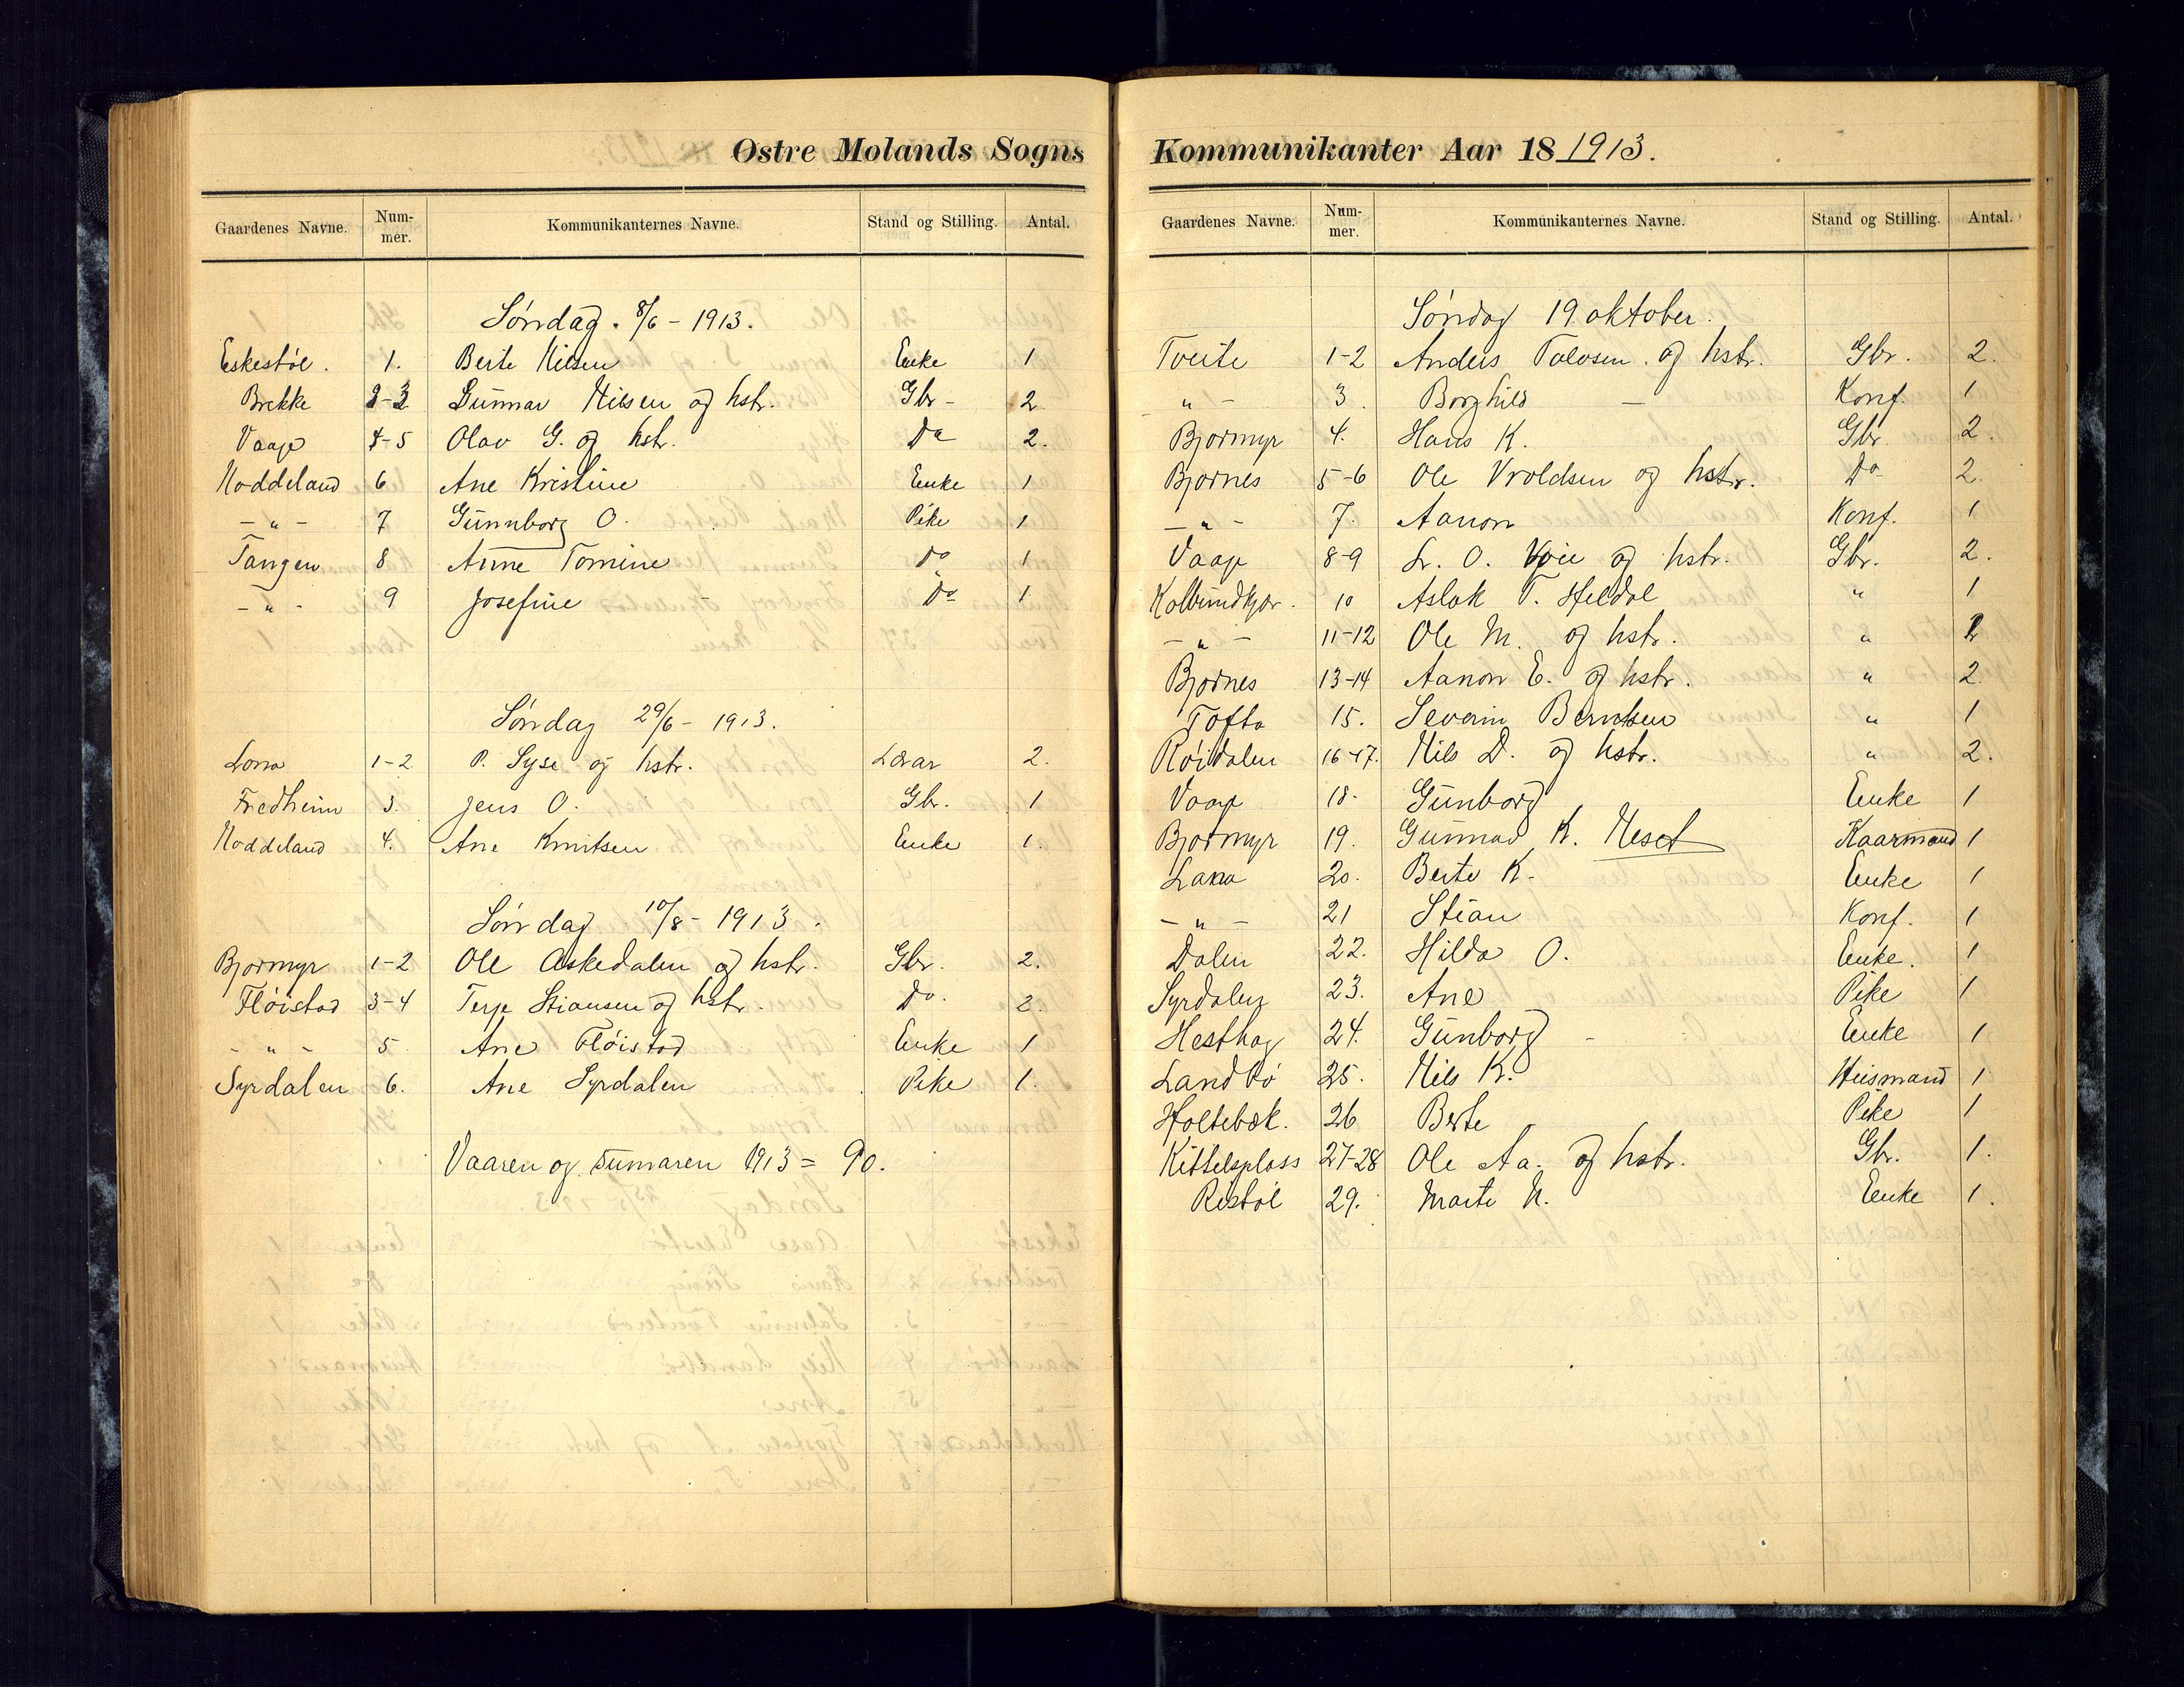 Østre Molands Sogns
Gaardenes Navne. Num-mer. Kommunikanternes Navne. Stand og Stilling. Antal.
Søndag. 8/6 - 1913.
Eskestøl. 1. Berte Nilsen Enke 1
Brekke 2-3 Gunnar Nilsen og hstr. Gbr - 2
Vaaje 4-5 Olav G. og hstr. Do 2.
Noddeland 6 Ane Kristine Enke 1
- " - 7 Gunnborg O. Pike 1
Tangen 8 Anne Tomine Do 1
- " - 9 Josefine Do 1
Søndag 29/6 - 1913.
1-2 P. Lyse og hstr. Lærar 2.
Fredheim 3. Jens O. Gbr. 1
Noddeland 4. Ane Knutsen Enke 1.
Søndag 10/8 - 1913.
Bjormyr 1-2 Ole Askedalen og hstr. Gbr. 2.
Fløistad 3-4 Terje Stiansen og hstr. Do. 2.
- " - 5 Ane Fløistad Enke 1
Syrdalen 6. Ane Syrdalen Pike 1.
Vaaren og sumaren 1913 = 90.
Kommunikanter Aar 18 1913.
Gaardenes Navne. Num-mer. Kommunikanternes Navne. Stand og Stilling. Antal.
Søndag 19 oktober.
Tveite 1-2 Anders Talosen. og hstr. Gbr. 2.
" - 3 Borghild - Konf. 1
Bjormyr 4. Hans K. Gbr. 2.
Bjornes 5-6 Ole Vroldsen og hstr. Do 2.
- " - 7. Aanon Konf. 1
Vaaje 8-9 og hstr. Gbr. 2.
10 Aslak T. Heldal " 1
- " - 11-12 Ole M. og hstr. " 2
Bjornes 13-14 Aanon E. og hstr. " 2.
Tofta 15. Severin Berntsen " 1
Røisdalen 16-17. Nils D. og hstr. " 2.
Vaaje 18. Gunborg Enke 1
Bjormyr 19. Gunnar K. Neset Kaarmand 1
20. Berte K. Enke 1
- " - 21 Stian Konf. 1
Dalen 22. Hilda O. Enke. 1
Syrdalen 23. Ane Pike 1
Hesthag 24. Gunborg - Enke 1
Landbø 25. Nils K. Husmand 1
Holtebæk. 26 Berte Pike 1
Kittelsplass 27-28 Ole Aa. og hstr. Gbr. 1.
Ristøl 29. Marte N. Enke 1.